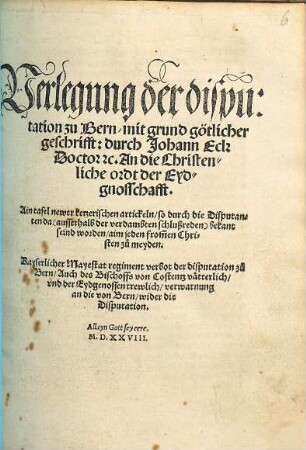 6
Verlegung der dispu:
tation zu Bern/ mit grund götlicher
geschrifft: durch Johann Eck
Doctor ꝛc. An die Christen-
liche ordt der Eyd-
gnosschafft.
Ain tafel newer ketzerischen artickeln/ so durch die Disputan-
ten da (ausserhalb der verdambten schlußreden) bekant
seind worden/ aim jeden frommen Chri-
sten zů meyden.
Kayserlicher Mayestat regiment verbot der disputation zů
Bern/ Auch des Bischoffs von Costentz vätterlich/
vnd der Eydgenossen trewlich/ verwarnung
an die von Bern/ wider die
Disputation.
Alleyn Gott sey eere.
M. D. XXVIII.